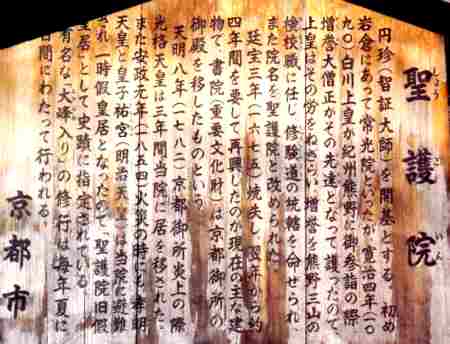 聖護院
しょうごいん
円珍(智証大師)を開基とする。初め
岩倉にあって常光院といったが、寛治四年(一〇
九〇)白川上皇が紀州熊野に御参詣の際
増誉大僧正がその先達となって護ったので、
上皇はその労をねぎらい、増誉を熊野三山の
検校職に任じ、修験道の統轄を命ぜられ、
また院名を聖護院と改められた。
延宝三年(一六七五)焼失し、翌年から約
四年間を要して再興したのが現在の主な建
物で、書院(重要文化財)は京都御所の
御殿を移したものという。
天明八年(一七八二)京都御所炎上の際
光格天皇は三年間当院に居を移された。
また安政元年(一八五四)火災の時にも、孝明
天皇と皇子祐宮(明治天皇)は当院に避難
され、一時假皇居となったので、聖護院旧假
皇居」として史蹟に指定されている。
有名な「大峰入り」の修行は毎年夏に
日間にわたって行われる。
京都市